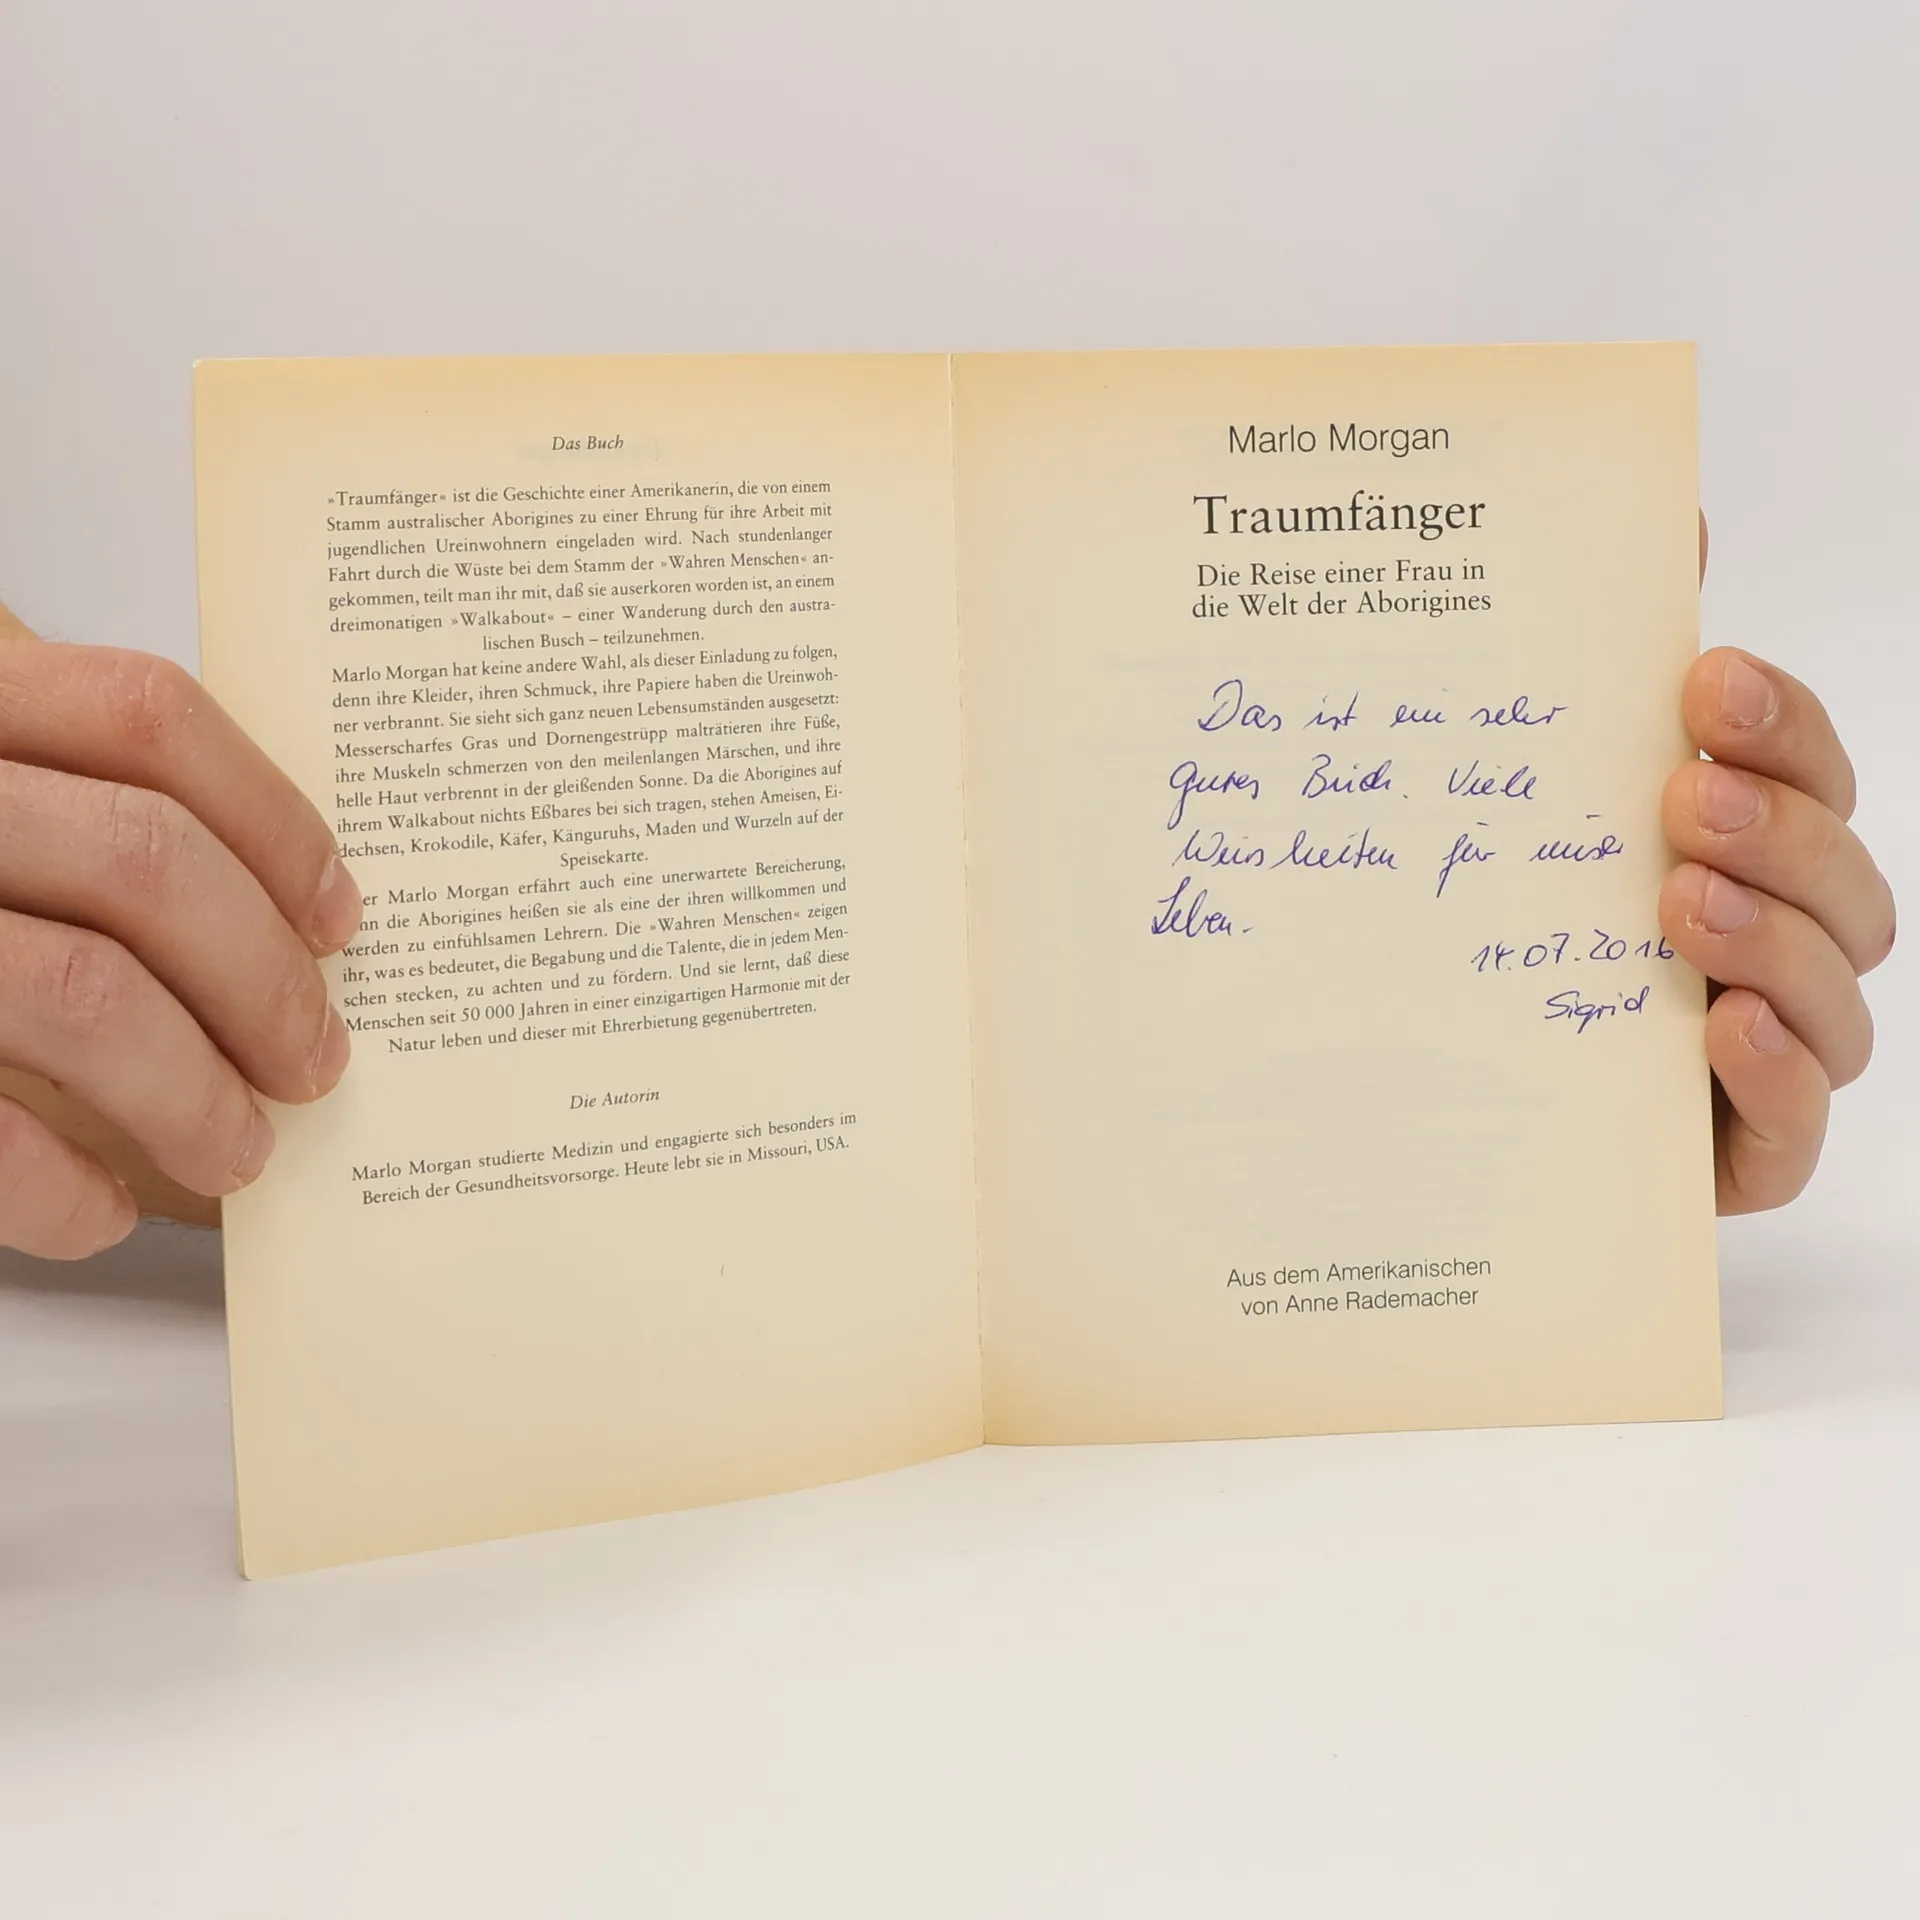 Das Buch
»Traumfänger« ist die Geschichte einer Amerikanerin, die von einem
Stamm australischer Aborigines zu einer Ehrung für ihre Arbeit mit
jugendlichen Ureinwohnern eingeladen wird. Nach stundenlanger
Fahrt durch die Wüste bei dem Stamm der »Wahren Menschen« an-
gekommen, teilt man ihr mit, daß sie auserkoren worden ist, an einem
dreimonatigen »Walkabout« – einer Wanderung durch den austra-
lischen Busch – teilzunehmen.
Marlo Morgan hat keine andere Wahl, als dieser Einladung zu folgen,
denn ihre Kleider, ihren Schmuck, ihre Papiere haben die Ureinwoh-
ner verbrannt. Sie sieht sich ganz neuen Lebensumständen ausgesetzt:
Messerscharfes Gras und Dornengestrüpp malträtieren ihre Füße,
ihre Muskeln schmerzen von den meilenlangen Märschen, und ihre
helle Haut verbrennt in der gleißenden Sonne. Da die Aborigines auf
ihrem Walkabout nichts Eßbares bei sich tragen, stehen Ameisen, Ei-
dechsen, Krokodile, Käfer, Känguruhs, Maden und Wurzeln auf der
Speisekarte.
er Marlo Morgan erfährt auch eine unerwartete Bereicherung,
nn die Aborigines heißen sie als eine der ihren willkommen und
werden zu einfühlsamen Lehrern. Die »Wahren Menschen« zeigen
ihr, was es bedeutet, die Begabung und die Talente, die in jedem Men-
schen stecken, zu achten und zu fördern. Und sie lernt, daß diese
Menschen seit 50 000 Jahren in einer einzigartigen Harmonie mit der
Natur leben und dieser mit Ehrerbietung gegenübertreten.
Die Autorin
Marlo Morgan studierte Medizin und engagierte sich besonders im
Bereich der Gesundheitsvorsorge. Heute lebt sie in Missouri, USA.
Marlo Morgan
Traumfänger
Die Reise einer Frau in
die Welt der Aborigines
Das ist ein sehr
gutes Buch. Viele
Weisheiten für unser
Leben.
14.07.2016
Sigrid
Aus dem Amerikanischen
von Anne Rademacher